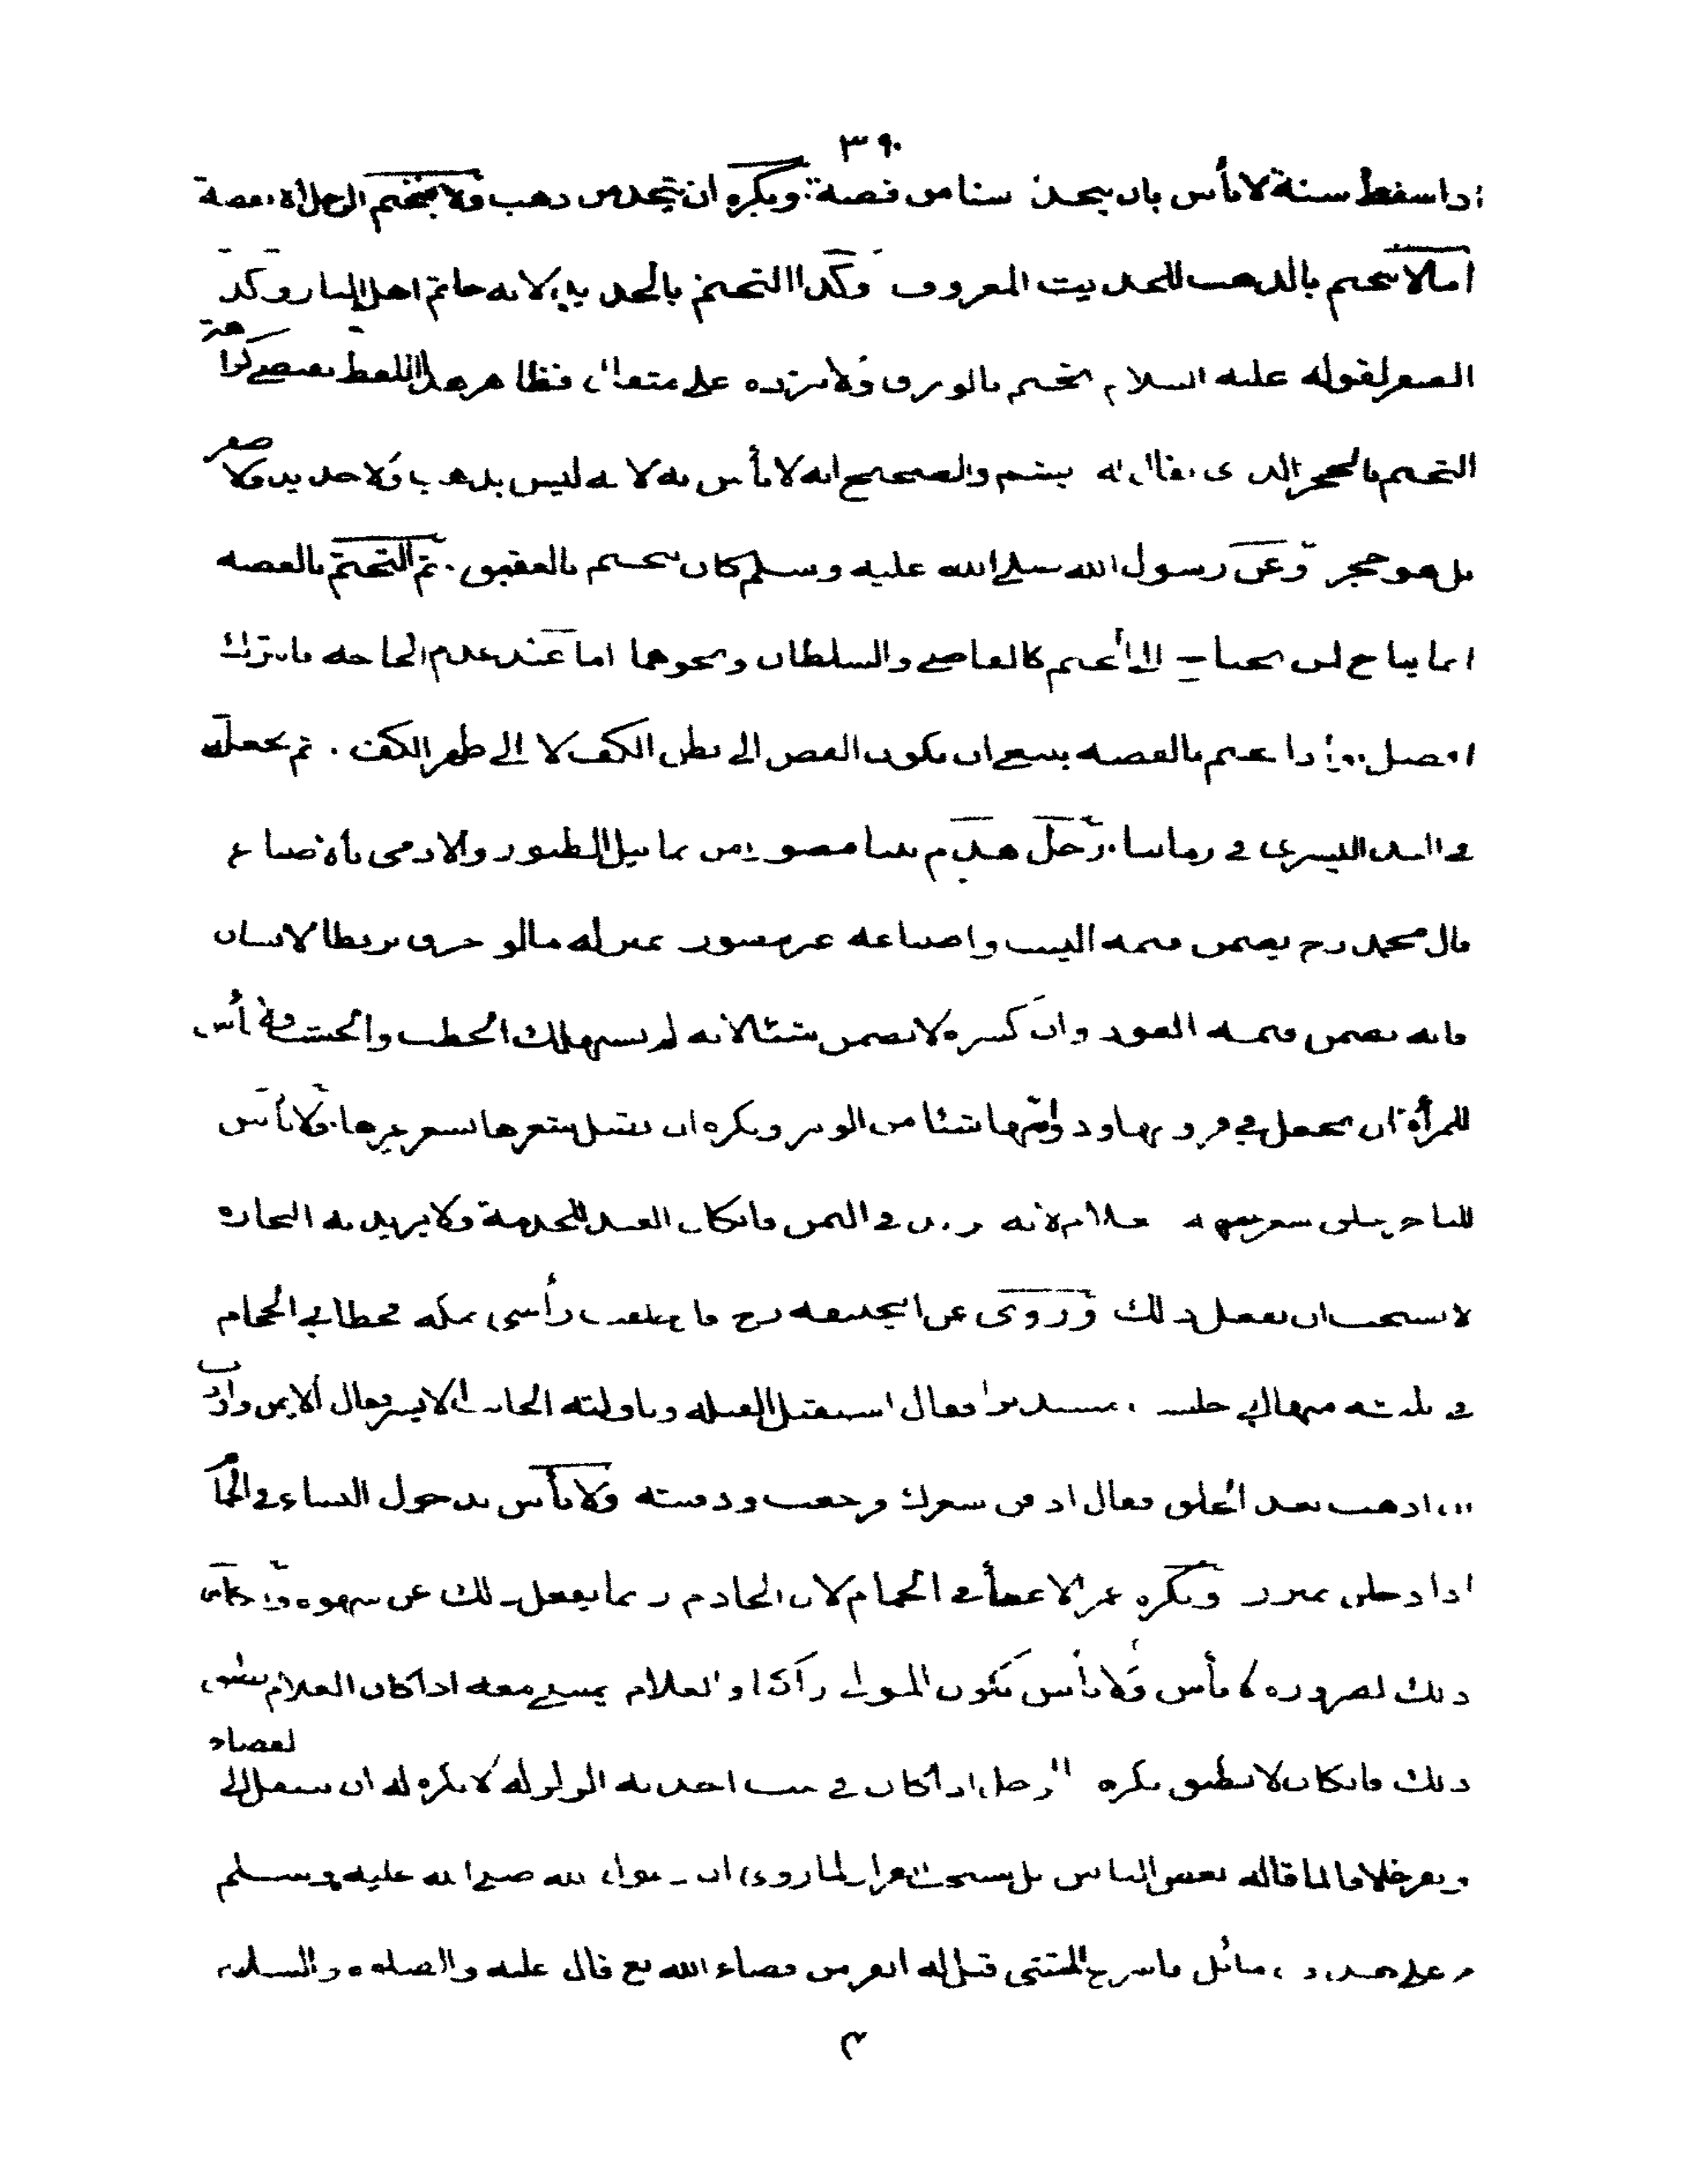 ٣٩٠
اذا سقط سنه لا بأس بان يتخذ سنا من فضة ويكره ان يتخذ من ذهب ولا يتختم الرجل الا بفضة
اما لا يتختم بالذهب للحديث المعروف وكذا التختم بالحديد لانه خاتم اهل النار وكذ
الصفر لقوله عليه السلام تختم بالورق ولا تزده على مثقال فظاهر هذا اللفظ يقتضي كراهة
التختم بالحجر الذي يقال له يشم والصحيح انه لا بأس به لانه ليس بذهب ولا حديد ولا صفر
بل هو حجر وعن رسول الله صلى الله عليه وسلم كان يتختم بالعقيق ثم التختم بالفضه
انما يباح لمن يحتاج الى التختم كالقاضي والسلطان ونحوهما اما عند عدم الحاجه فالترك
افضل واذا تختم بالفضه ينبغي ان يكون الفص الى بطن الكف لا الى ظهر الكف ثم يجعله
في اليد اليسرى في زماننا رجل هدم بيتا مصور من تماثيل الطيور والادمي بالاصباغ
قال محمد رح يضمن قيمه البيت واصباغه غير مصور بمنزله ما لو خرق بربطا لانسان
فانه يضمن قيمه العود وان كسره لا يضمن شيئا لانه لم يستهلك الحطب والخشب ولا بأس
للمرأة ان تجعل في قرونها وذوائبها شيئا من الوبر ويكره ان تصل شعرها بشعر غيرها ولا بأس
للتاجر حلق شعر جبهة غلام لانه يزيد في الثمن فان كان العبد للخدمة ولا يريد به التجاره
لا يستحب ان يفعل ذلك وروى عن ابي حنيفه رح قال حلقت رأسي بمكه فخطاني الحجام
في ثلثه منها اني جلست مستدبرا فقال استقبل القبله وناولته الجانب الايسر فقال الايمن واردت
ان اذهب بعد الحلق فقال ادفن شعرك فرجعت ودفنته ولا بأس بدخول النساء في الحمام
اذا دخلن بمئزر ويكره غمز الاعضأ في الحمام لان الخادم ربما يفعل ذلك عن شهوه وان كان
ذلك لضروره لا بأس ولا بأس بكون المولى راكبا والغلام يمشي معه اذا كان الغلام يطيق
ذلك فان كان لا يطيق يكره الرجل اذا كان في بيت اخذته الزلزله لا يكره له ان ينتقل الى الفضاء
ويفر خلافا لما قاله بعض الناس بل يستحب الفرار لما روى ان رسول الله صلى الله عليه وسلم
مر على هدف مائل فاسرع المشي فقيل له اتفر من قضاء الله تع فقال عليه والصلوه والسلام